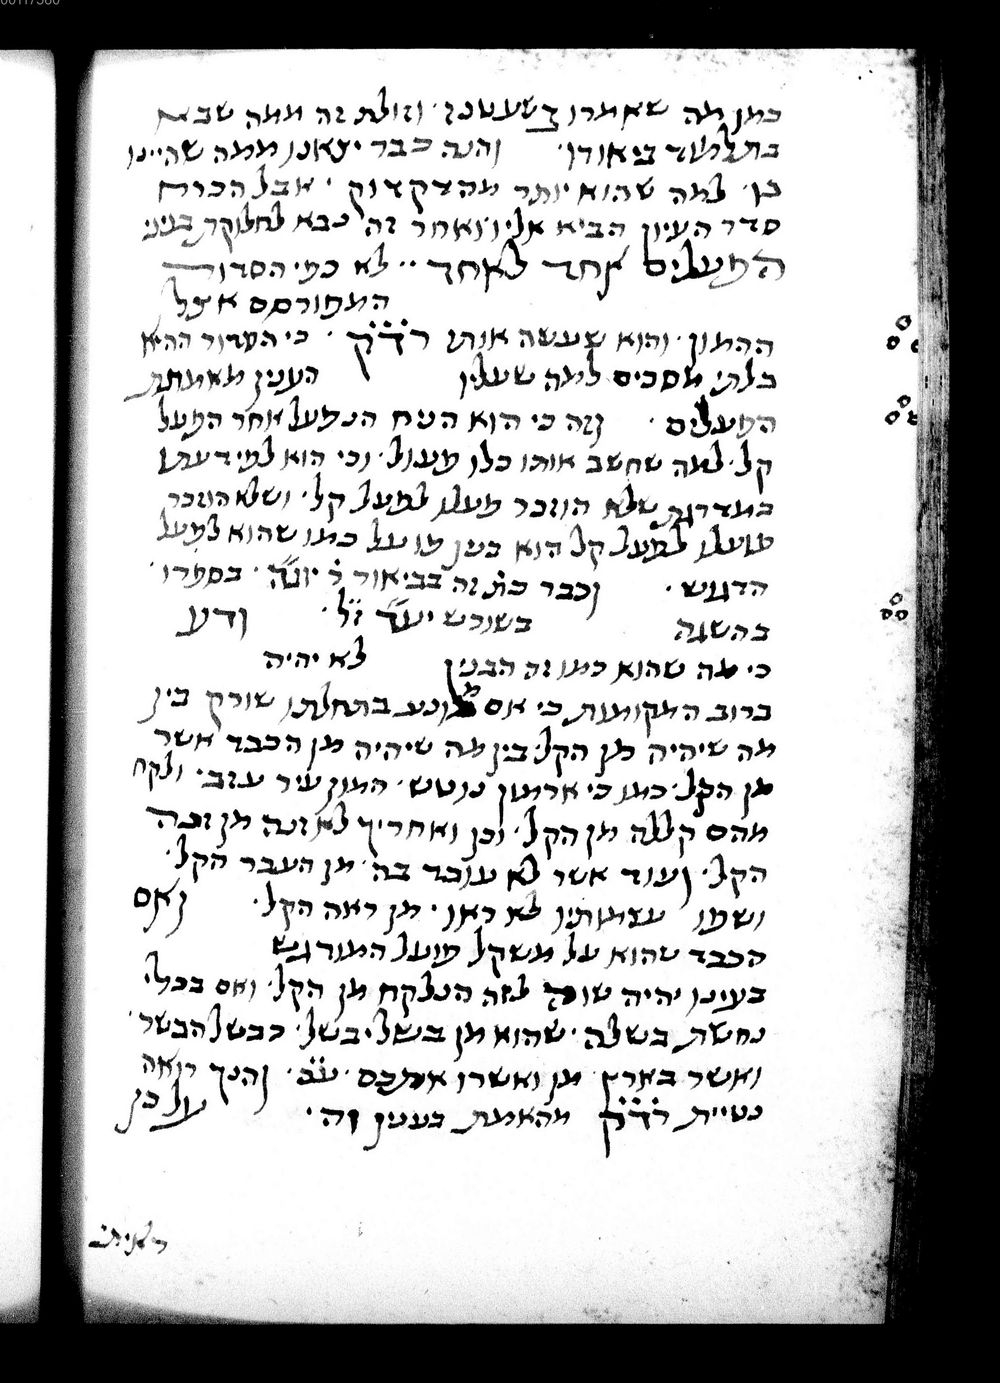 כמן מה שאמרו בשעטנז. וזולת זה ממה שבא
בתלמוד ביאורו. והנה כבר יצאנו ממה שהיינו
בו. למה שהוא יותר מהדקדוק. אבל הכרח
סדר העיון הביא אליו ואחר זה נבא לחלוקת בניני
הפעלים אחד לאחד .. לא כפי הסדור
המפורסם אצל
ההמון. והוא שעשה אותו רד״ק. כי הסדור ההיא
בלתי מסכים למה שעליו הענין מאמתת
הפעלים. וזה כי הוא הניח הנפעל אחר הפעל
קל. למה שחשב אותו כלו פעול. וכי הוא לפי דעתו
במדרגת שלא הוזכר פועלו לפעל קל. ושלא הוזכר
פועלו לפעל קל הוא בנין פועל כמו שהוא לפעל
הדגוש. וכבר כת׳ זה בביאור ר׳ יונה. בספרו.
בהשגה בשורש יער ז״ל. ודע
כי מה שהוא כמו זה הבנין לא יהיה
ברוב המקומות כי אם בתחלתו שורק בין
מה שיהיה מן הקל בין מה שיהיה מן הכבד אשר
מן הקל. כמו כי ארמון נוטש. המון עיר עוזב. ולקח
מהם קללה מן הקל. וכן ואחריך לא זונה מן זנה
הקל. ועוד אשר לא עובד בה. מן העבר הקל.
ושפו עצמותיו לא ראו. מן ראה הקל. ואם
הכבד שהוא על משקל פועל המודגש
בעינו יהיה שוה לזה הנלקח מן הקל. ואם בכלי
נחשת בשלה. שהוא מן בשל יבשל. כבשל הבשר.
ואשר בארץ. מן ואשרו אתכם. ע״כ. והנך רואה
נטיית רד״ק מהאמת בענין זה. על כן
ראיתי